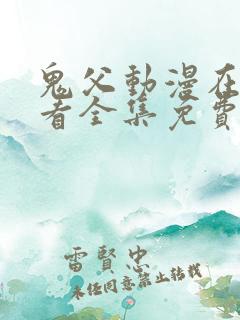 鬼父動漫在
看全集免費
雷賢忠
未经同意禁止转载